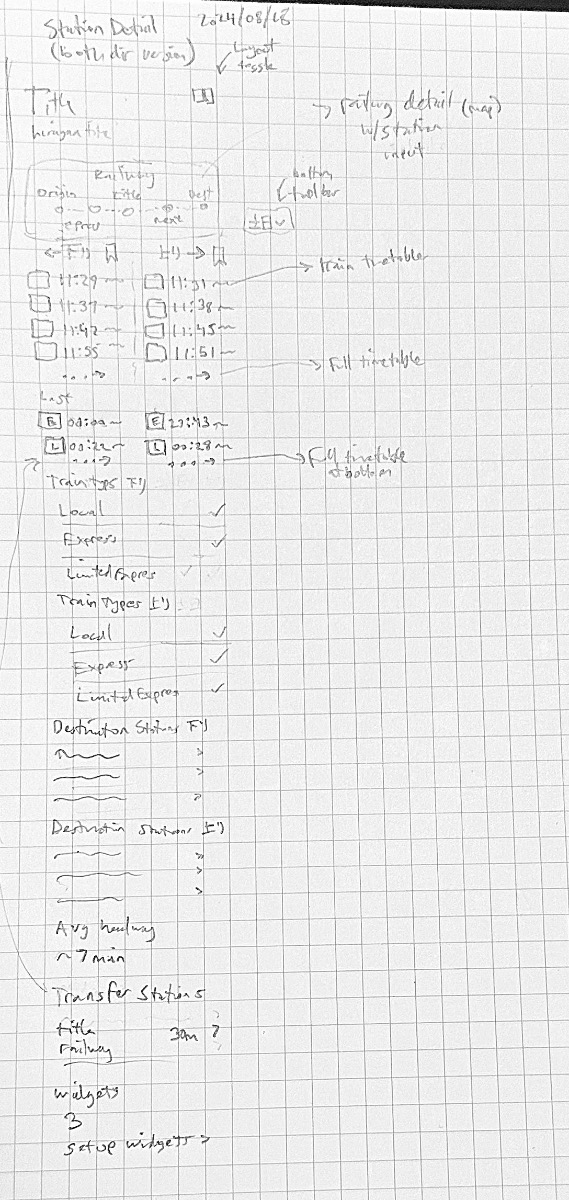 Station Detail 2024/08/28
(both dir version)
Layout
toggle
Title
hiragana title
→ railway detail (map)
w/station
input
Railway
Origin title Dest
prev next
bottom
toolbar
土日 ✓
← 下り 上り →
11:29 11:31 → train timetable
11:37 11:38
11:42 11:45
11:55 11:51
...→ ...→ → Full timetable
Last
E 00:00 E 23:43
L 00:22 L 00:28
...→ ...→ → Full timetable
@ bottom
Train types 下り
Local ✓
Express ✓
Limited Expres ✓
Train Types 上り
Local ✓
Express ✓
Limited Expres ✓
Destination Stations 下り
>
>
>
Destination Stations 上り
>
>
>
Avg headway
~7 min
Transfer Stations
title 30m >
railway
Widgets
3
setup widgets >